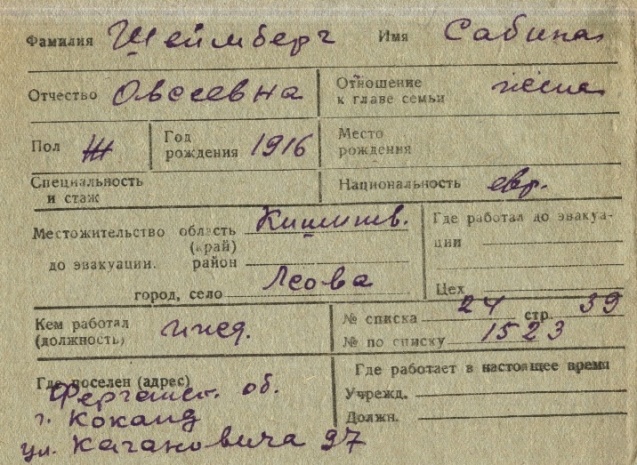 Фамилия Шеймберг Имя Сабина
Отчество Овсеевна Отношение к главе семьи
Пол Ж Год рождения 1916 Место рождения
Специальность и стаж Национальность евр.
Местожительство область Кишинев. Где работал до эвакуа-
(край) ции
до эвакуации. район
город, село Леова Цех
Кем работал № списка 24 стр. 39
(должность) ижд. № по списку 1523
Где поселен (адрес) Где работает в настоящее время
Ферганск. об. Учрежд.
г. Коканд Должн.
ул. Кагановича 97